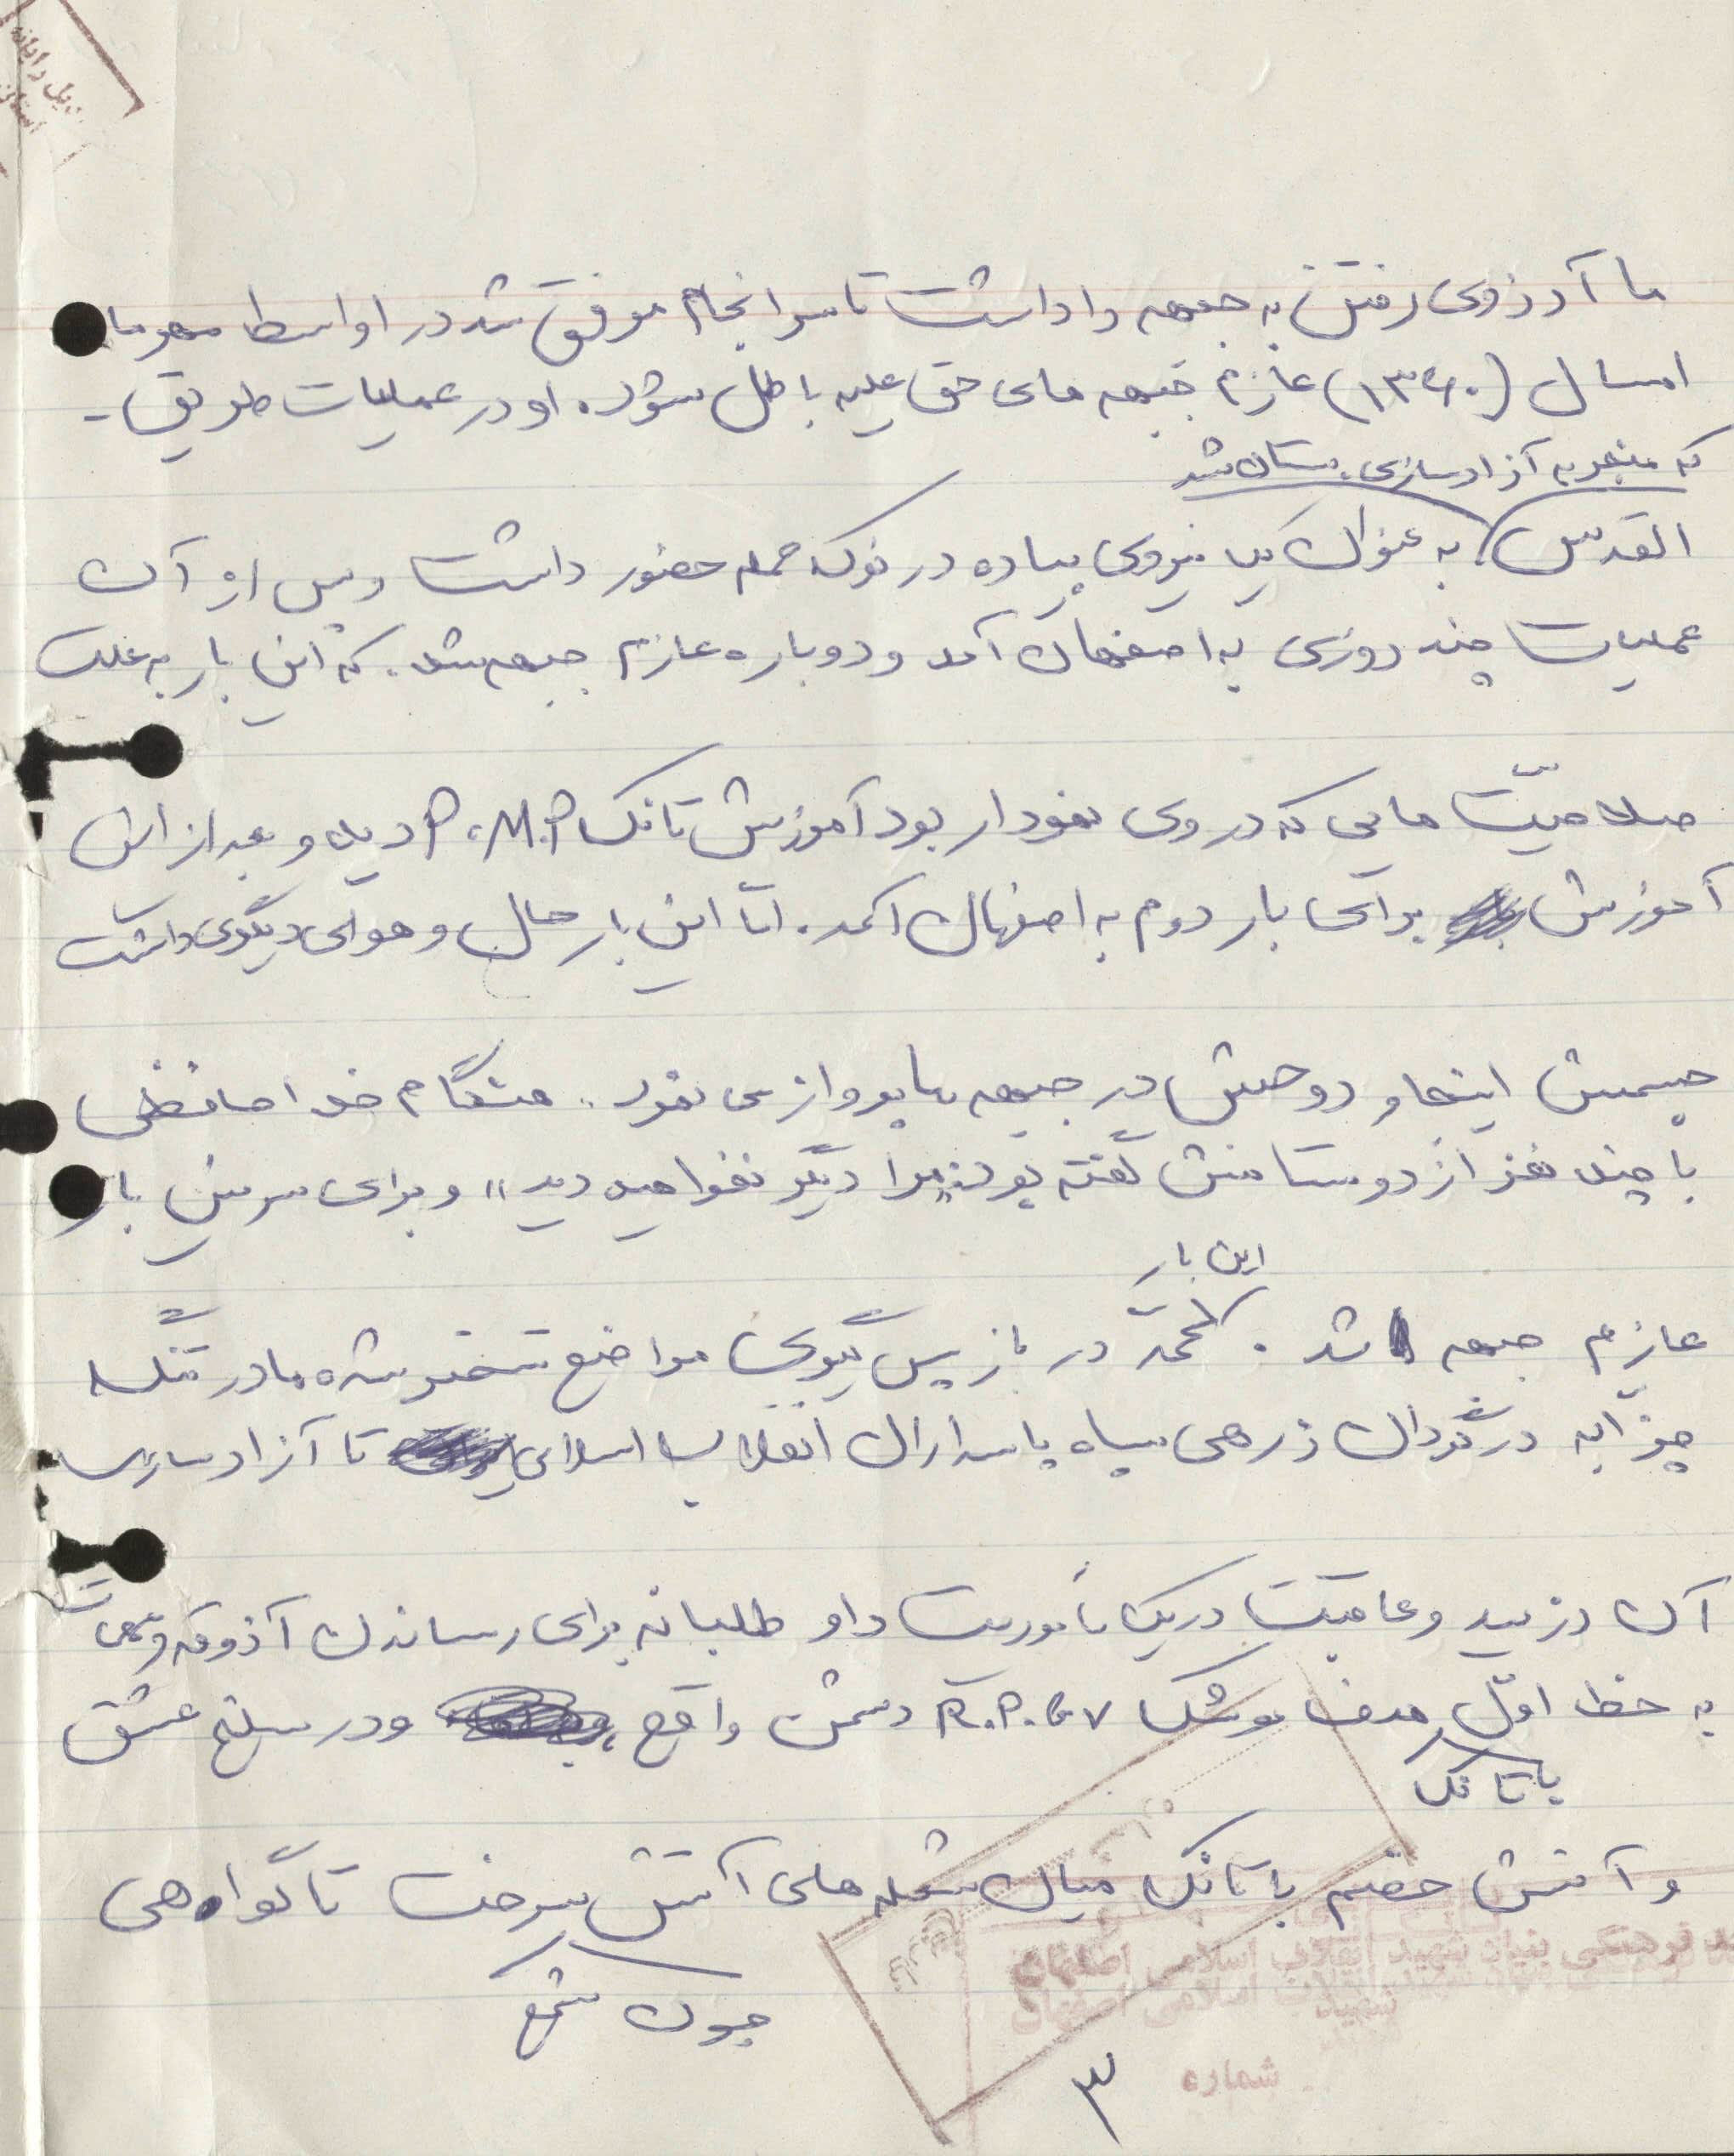 ما آرزوی رفتن به جبهه را داشت تا سرانجام موفق شد در اواسط مهرماه
امسال (۱۳۶۰) عازم جبهه های حق علیه باطل شود. او در عملیات طریق-
که منجر به آزادسازی بستان شد
القدس به عنوان یک نیروی پیاده در نوک حمله حضور داشت و پس از آن
عملیات چند روزی به اصفهان آمد و دوباره عازم جبهه شد. که این بار به علت
صلاحیّت هایی که در وی نمودار بود آموزش تانک P.M.P دید و بعد از این
آموزش برای بار دوم به اصفهان آمد. امّا این بار حال و هوای دیگری داشت
جسمش اینجا و روحش در جبهه ها پرواز می نمود. هنگام خداحافظی
با چند نفر از دوستانش گفته بود: «مرا دیگر نخواهید دید» و برای سومین بار
این بار
عازم جبهه شد. محمّد در بازپس گیری مواضع تسخیر شده ما در تنگه
چزّابه در گردان زرهی سپاه پاسداران انقلاب اسلامی تا آزادسازی
آن رزمید و عاقبت در یک مأموریت داوطلبانه برای رساندن آذوقه و مهمات
به خط اوّل هدف موشک R.P.G7 دشمن واقع و در مسلخ عشق
با تانک
و آتش خصم با تانک میان شعله های آتش سوخت تا گواهی
چون شمع
فرهنگی بنیاد شهید انقلاب اسلامی اصفهان
شماره
۳